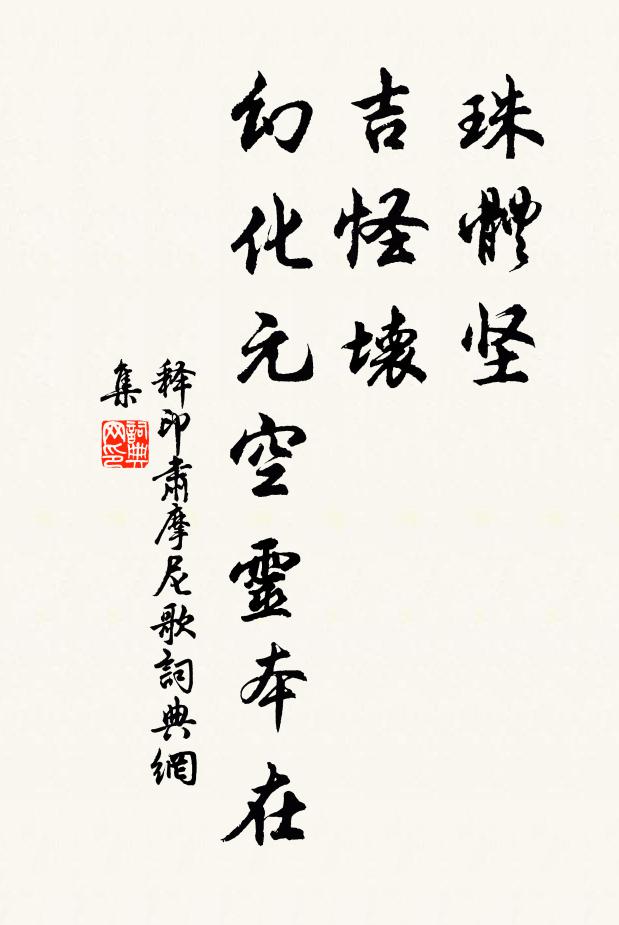 珠體坚
吉怪壞
幻化元空靈本在
释印肃摩尼歌詞典網
集
詞典网印